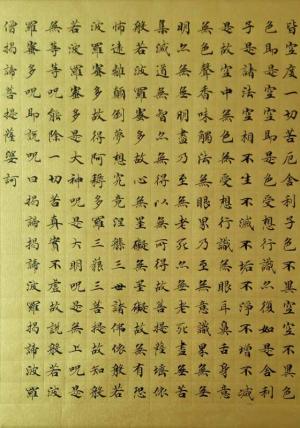 皆空度一切苦厄舍利子色不異空空不異色
色即是空空即是色受想行識亦復如是舍利
子是諸法空相不生不滅不垢不淨不增不減
是故空中無色無受想行識無眼耳鼻舌身意
無色聲香味觸法無眼界乃至無意識界無無
明亦無無明盡乃至無老死亦無老死盡無苦
集滅道無智亦無得以無所得故菩提薩埵依
般若波羅蜜多故心無罣礙無罣礙故無有恐
怖遠離顛倒夢想究竟涅槃三世諸佛依般若
波羅蜜多故得阿耨多羅三藐三菩提故知般
若波羅蜜多是大神呪是大明呪是無上呪是
無等等呪能除一切苦真實不虛故說般若波
羅蜜多呪即說呪曰揭諦揭諦波羅揭諦波羅
僧揭諦菩提薩婆訶